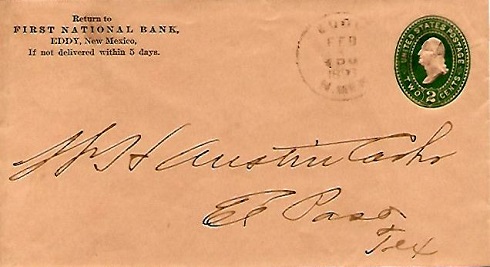 Return to
FIRST NATIONAL BANK,
EDDY, New Mexico,
If not delivered within 5 days.
EDDY
FEB
4 PM
N. MEX.
UNITED STATES POSTAGE
TWO 2 CENTS
W H Austin Cashr
El Paso
Tex